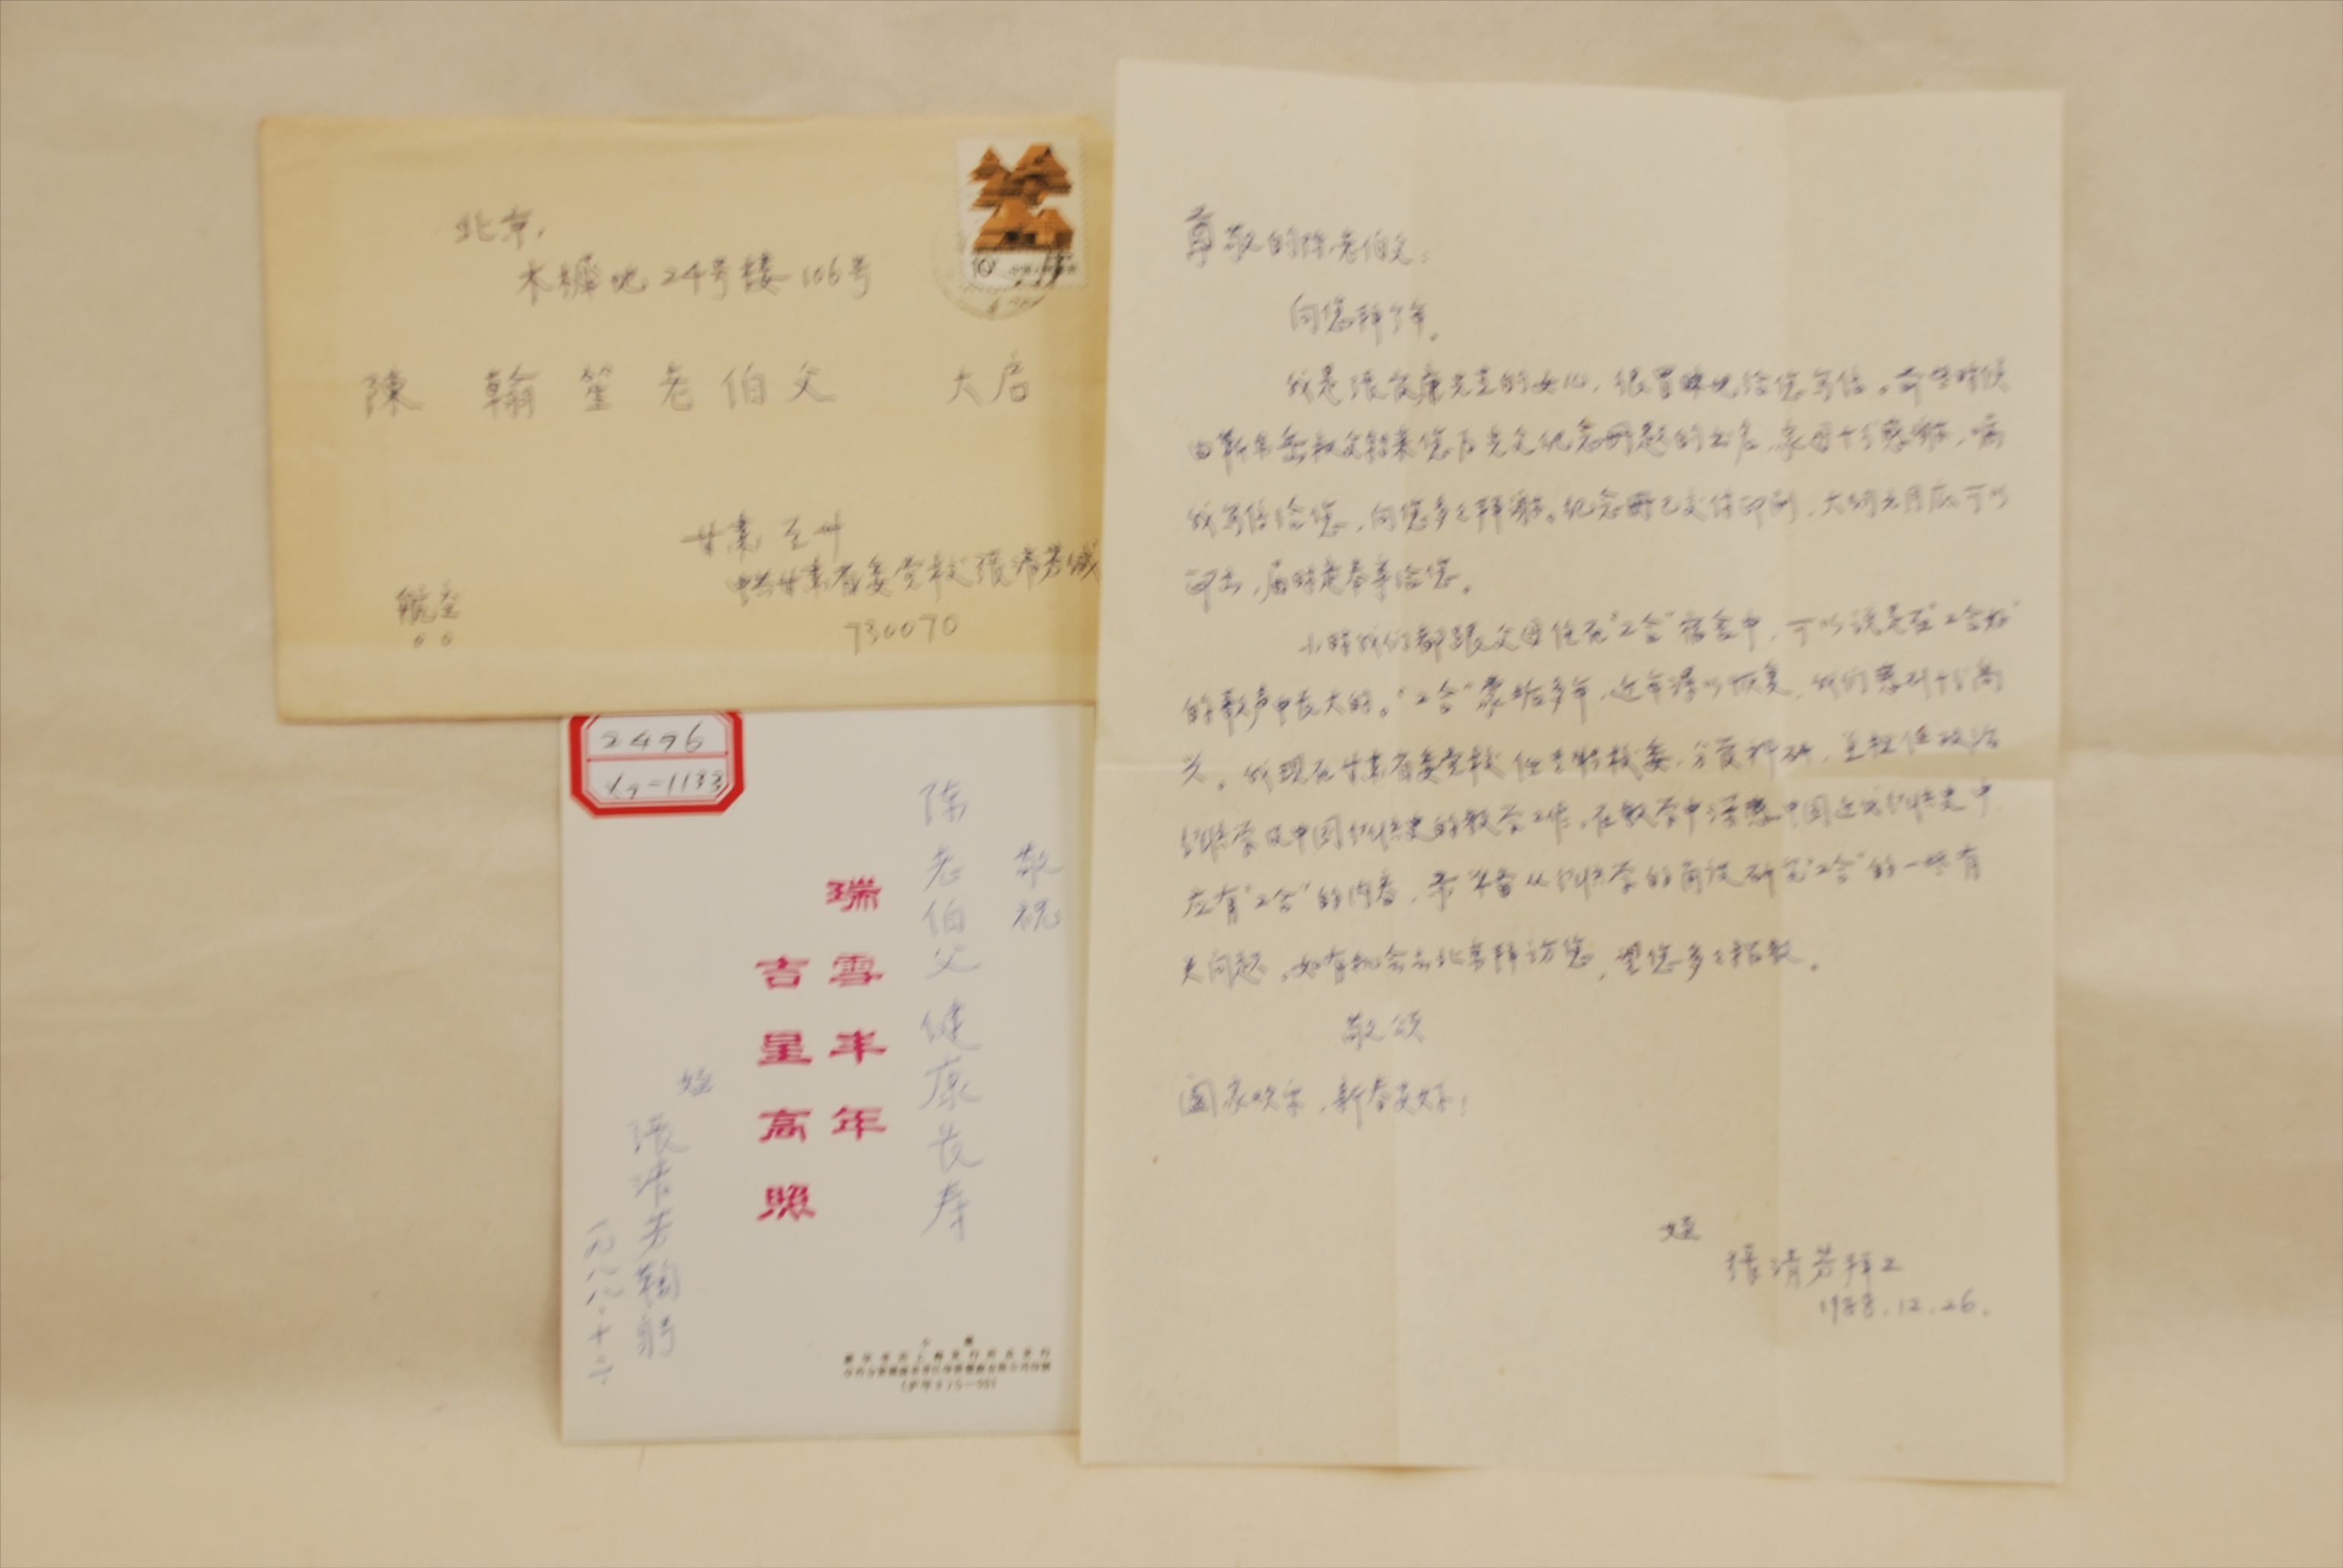 北京,
木樨地24号楼106号
陳翰笙老伯父 大启
甘肃 兰州
中共甘肃省委党校 张清芳缄
730070
航空
10 中国人民邮政
2496
敬祝
陈老伯父健康长寿
瑞雪丰年
吉星高照
侄
張清芳鞠躬
尊敬的陈老伯父:
向您拜个年。
我是张官廉先生的女儿,很冒昧地给您写信。前些时候
由靳 叔父转来您为先父纪念册题的书名,家母十分感谢,嘱
我写信给您,向您多多拜谢。纪念册已交付印刷,大约元月底可以
印出,届时定奉寄给您。
小时我们都跟父母住在“工合”宿舍中,可以说是在“工合好”
的歌声中长大的。“工合”蒙垢多年,近年得以恢复,我们感到十分高
兴。我现在甘肃省委党校任专职校委,分管科研,并担任政治
经济学及中国经济史的教学工作。在教学中深感中国近代经济史中
应有“工合”的内容,亦准备从经济学的角度研究“工合”的一些有
关问题。如有机会去北京拜访您,望您多多指教。
敬颂
阖家欢乐,新春安好!
侄
張清芳拜上
1988.12.26.